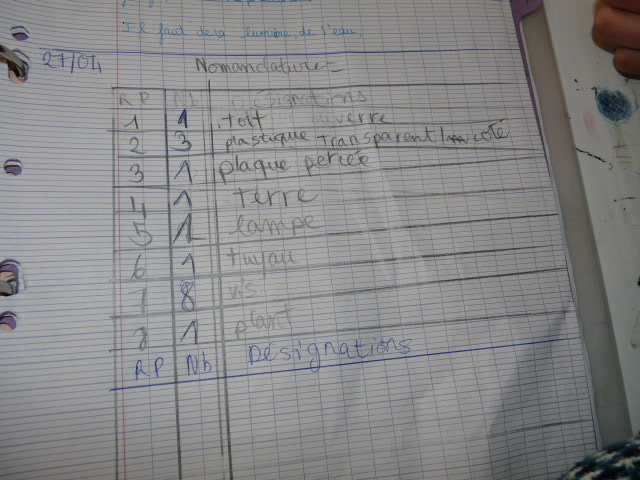 Il faut de la lumière, de l'eau.
27/04
Nomanclature
RP Nb Désignations
1 1 toit verre
2 3 plastique transparent coté
3 1 plaque percée
4 1 terre
5 1 lampe
6 1 tuyau
7 8 vis
8 1 plant
RP Nb Désignations